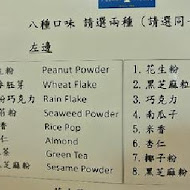 八種口味 請選兩種（請選同一
左邊
生粉 Peanut Powder 1. 花生粉
胚芽 Wheat Flake 2. 黑芝麻粒
巧克力 Rain Flake 3. 巧克力
苔粉 Seaweed Powder 4. 南瓜子
香 Rice Pop 5. 米香
仁 Almond 6. 杏仁
茶 Green Tea 7. 椰子粉
芝麻粉 Sesame Powder 8. 黑芝麻粉